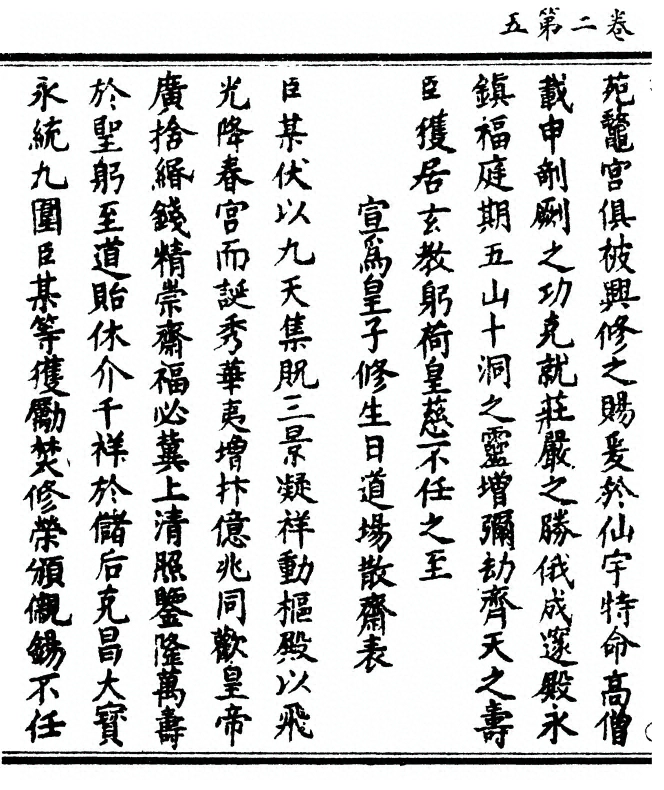 卷二第五
苑鼈宮俱被興修之賜爰於仙宇特命高僧
載申剞劂之功克就莊嚴之勝俄成邃殿永
鎮福庭期五山十洞之靈增彌劫齊天之壽
臣獲居玄教躬荷皇慈不任之至
宣為皇子修生日道場散齋表
臣某伏以九天集貺三景凝祥動樞殿以飛
光降春宮而誕秀華夷增抃億兆同歡皇帝
廣捨緡錢精崇齋福必冀上清照鑒隆萬壽
於聖躬至道貽休介千祥於儲后克昌大寶
永統九圍臣某等獲勵焚修榮頒儭錫不任